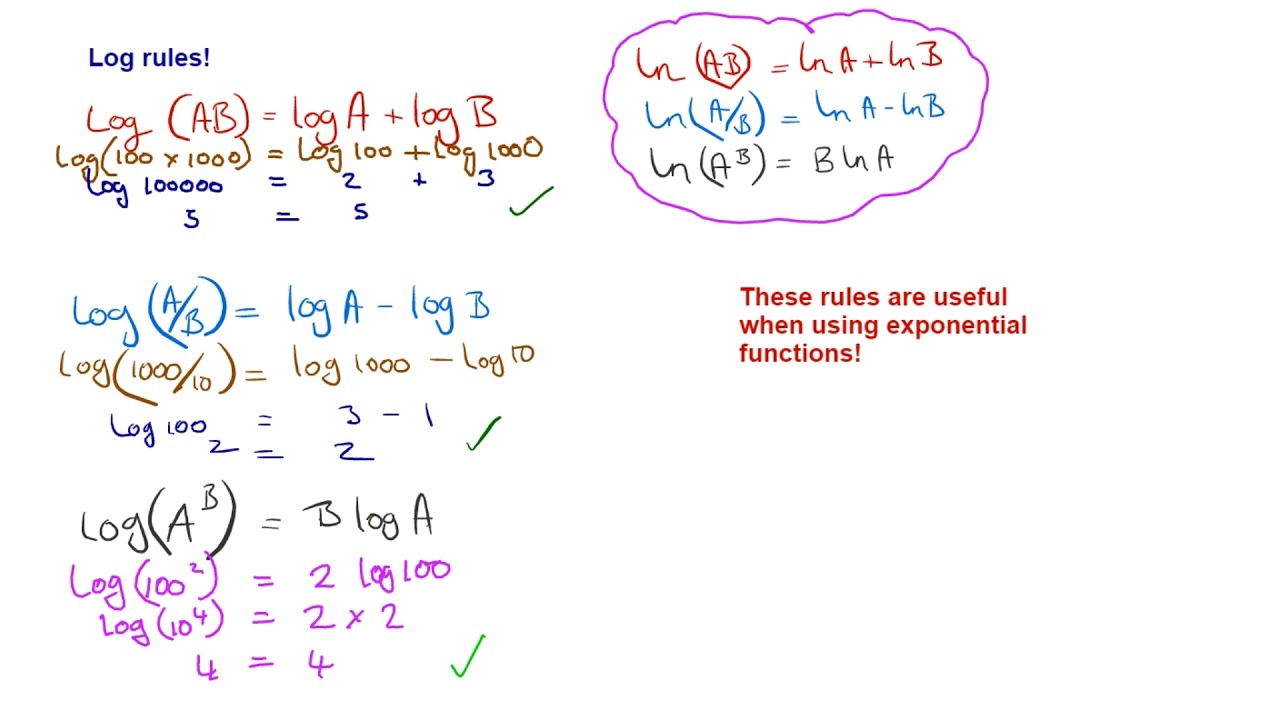 Log rules!
Log (AB) = log A + log B
Log(100 x 1000) = Log 100 + Log 1000
Log 100000 = 2 + 3
5 = 5 ✓
Log (A/B) = log A - log B
Log(1000/10) = log 1000 - Log 10
Log 100 = 3 - 1
2 = 2 ✓
Log(A^B) = B log A
Log(100²) = 2 log 100
Log(10⁴) = 2 x 2
4 = 4 ✓
ln (AB) = ln A + ln B
ln(A/B) = ln A - ln B
ln(A^B) = B ln A
These rules are useful
when using exponential
functions!